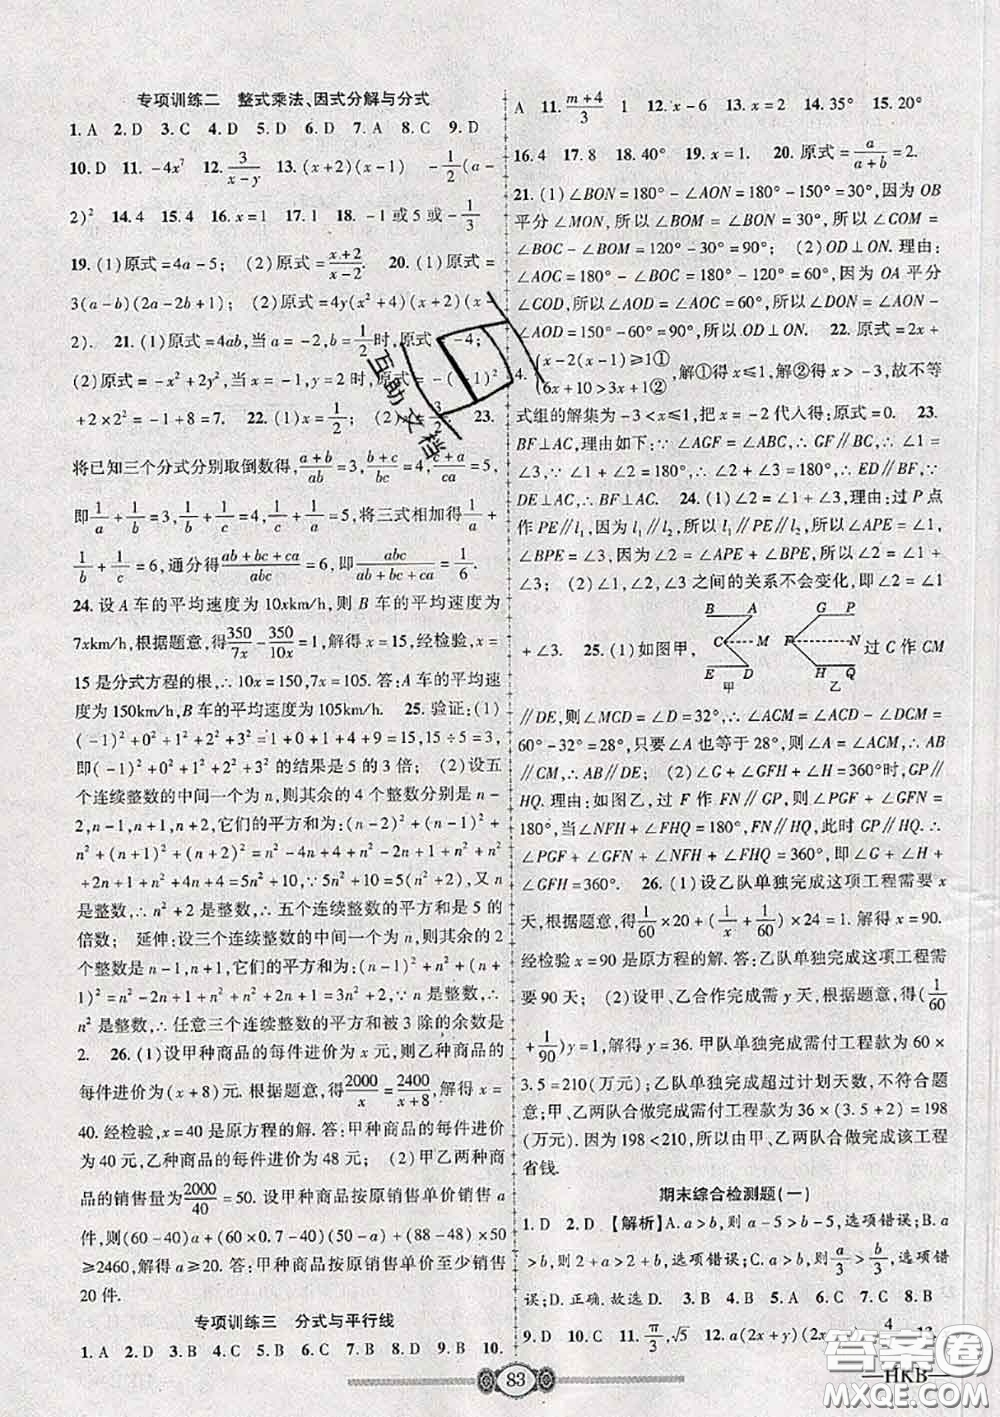 专项训练二 整式乘法、因式分解与分式
1. A 2. D 3. C 4. D 5. D 6. D 7. A 8. C 9. D
10. D 11. -4x⁷ 12. 3/(x-y) 13. (x+2)(x-1) -1/2(a-
2)² 14. 4 15. 4 16. x=1 17. 1 18. -1或5或-1/3
19. (1)原式=4a-5; (2)原式=(x+2)/(x-2). 20. (1)原式=
3(a-b)(2a-2b+1); (2)原式=4y(x²+4)(x+2)(x-
2). 21. (1)原式=4ab,当a=-2,b=1/2时,原式=-4;
(2)原式=-x²+2y²,当x=1,y=2时,原式=-(-1)²
+2×2²=-1+8=7. 22. (1)x=1/2; (2)x=3/2. 23.
将已知三个分式分别取倒数得,(a+b)/ab=3,(b+c)/bc=4,(c+a)/ca=5,
即1/a+1/b=3,1/b+1/c=4,1/c+1/a=5,将三式相加得1/a+
1/b+1/c=6,通分得(ab+bc+ca)/abc=6,即abc/(ab+bc+ca)=1/6.
24. 设A车的平均速度为10xkm/h,则B车的平均速度为
7xkm/h,根据题意,得350/7x-350/10x=1,解得x=15,经检验,x=
15是分式方程的根,∴10x=150,7x=105. 答:A车的平均速
度为150km/h,B车的平均速度为105km/h. 25. 验证:(1)
(-1)²+0²+1²+2²+3²=1+0+1+4+9=15,15÷5=3,
即(-1)²+0²+1²+2²+3²的结果是5的3倍; (2)设五
个连续整数的中间一个为n,则其余的4个整数分别是n-
2,n-1,n+1,n+2,它们的平方和为:(n-2)²+(n-1)²+
n²+(n+1)²+(n+2)²=n²-4n+4+n²-2n+1+n²+n²
+2n+1+n²+4n+4=5n²+10,∵5n²+10=5(n²+2),又n
是整数,∴n²+2是整数,∴五个连续整数的平方和是5的
倍数; 延伸:设三个连续整数的中间一个为n,则其余的2
个整数是n-1,n+1,它们的平方和为:(n-1)²+n²+(n+
1)²=n²-2n+1+n²+n²+2n+1=3n²+2,∵n是整数,∴
n²是整数,∴任意三个连续整数的平方和被3除的余数是
2. 26. (1)设甲种商品的每件进价为x元,则乙种商品的
每件进价为(x+8)元. 根据题意,得2000/x=2400/(x+8),解得x=
40. 经检验,x=40是原方程的解. 答:甲种商品的每件进价
为40元,乙种商品的每件进价为48元; (2)甲乙两种商品
的销售量为2000/40=50. 设甲种商品按原销售单价销售a
件,则(60-40)a+(60×0.7-40)(50-a)+(88-48)×50
≥2460,解得a≥20. 答:甲种商品按原销售单价至少销售
20件.
专项训练三 分式与平行线
1. A 2. D 3. A 4. A 5. B 6. D 7. B 8. B 9. B 10.
A 11. (m+4)/3 1 12. x-6 13. x=2 14. 35° 15. 20°
16. 4 17. 8 18. xy 19. x=1. 20. 原式=a/(a+b)=2.
21. (1)∠BON=180°-∠AON=180°-150°=30°,因为OB
平分∠MON,所以∠BOM=∠BON=30°,所以∠COM=
∠BOC-∠BOM=120°-30°=90°; (2)OD⊥ON. 理由:
∠AOC=180°-∠BOC=180°-120°=60°,因为OA平分
∠COD,所以∠AOD=∠AOC=60°,所以∠DON=∠AON-
∠AOD=150°-60°=90°,所以OD⊥ON. 22. 原式=2x+
4. {x-2(x-1)≥1①,6x+10>3x+1②,解①得x≤1,解②得x>-3,故不等
式组的解集为-3<x≤1,把x=-2代入得:原式=0. 23.
BF⊥AC,理由如下:∵∠AGF=∠ABC,∴GF∥BC,∴∠1=
∠3,∵∠1+∠2=180°,∴∠3+∠2=180°,∴ED∥BF,∵
DE⊥AC,∴BF⊥AC. 24. (1)∠2=∠1+∠3,理由:过P点
作PE∥l₁,因为l₁∥l₂,所以l₁∥PE∥l₂,所以∠APE=∠1,
∠BPE=∠3,因为∠2=∠APE+∠BPE,所以∠2=∠1+
∠3; (2)∠2、∠1、∠3之间的关系不会变化,即∠2=∠1
+∠3. 25. (1)如图甲,过C作CM
B A C M E D 甲
G P F N H Q 乙
∥DE,则∠MCD=∠D=32°,∴∠ACM=∠ACD-∠DCM=
60°-32°=28°,只要∠A也等于28°,则∠A=∠ACM,∴AB
∥CM,∴AB∥DE; (2)∠G+∠GFH+∠H=360°时,GP∥
HQ. 理由:如图乙,过F作FN∥GP,则∠PGF+∠GFN=
180°,当∠NFH+∠FHQ=180°,FN∥HQ,此时GP∥HQ. ∴
∠PGF+∠GFN+∠NFH+∠FHQ=360°,即∠G+∠H+
∠GFH=360°. 26. (1)设乙队单独完成这项工程需要x
天,根据题意,得1/60×20+(1/x+1/60)×24=1. 解得x=90.
经检验x=90是原方程的解. 答:乙队单独完成这项工程需
要90天; (2)设甲、乙合作完成需y天,根据题意,得(1/60
+1/90)y=1,解得y=36. 甲队单独完成需付工程款为60×
3.5=210(万元);乙队单独完成超过计划天数,不符合题
意;甲、乙两队合做完成需付工程款为36×(3.5+2)=198
(万元). 因为198<210,所以甲、乙两队合做完成该工程
省钱.
期末综合检测题(一)
1. D 2. D【解析】A. a>b,则a-5>b-5,选项错误;B. a
>b,则2+a>2+b,选项错误;C. a>b,则a/3>b/3,选项错
误;D. 正确. 故选D. 3. B 4. B 5. B 6. C 7. C 8. B
9. D 10. C 11. π/3,√5 12. a(2x+y)(2x 4 13.
83
互助文档
答案圈
HKB